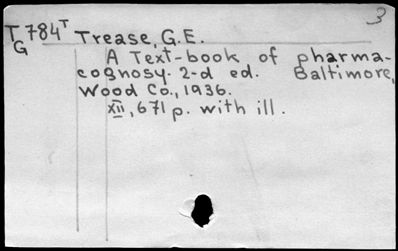 3
T784T Trease, G.E.
G
A Text-book of pharma-
cognosy. 2-d ed. Baltimore,
Wood Co., 1936.
XII, 671 p. with ill.